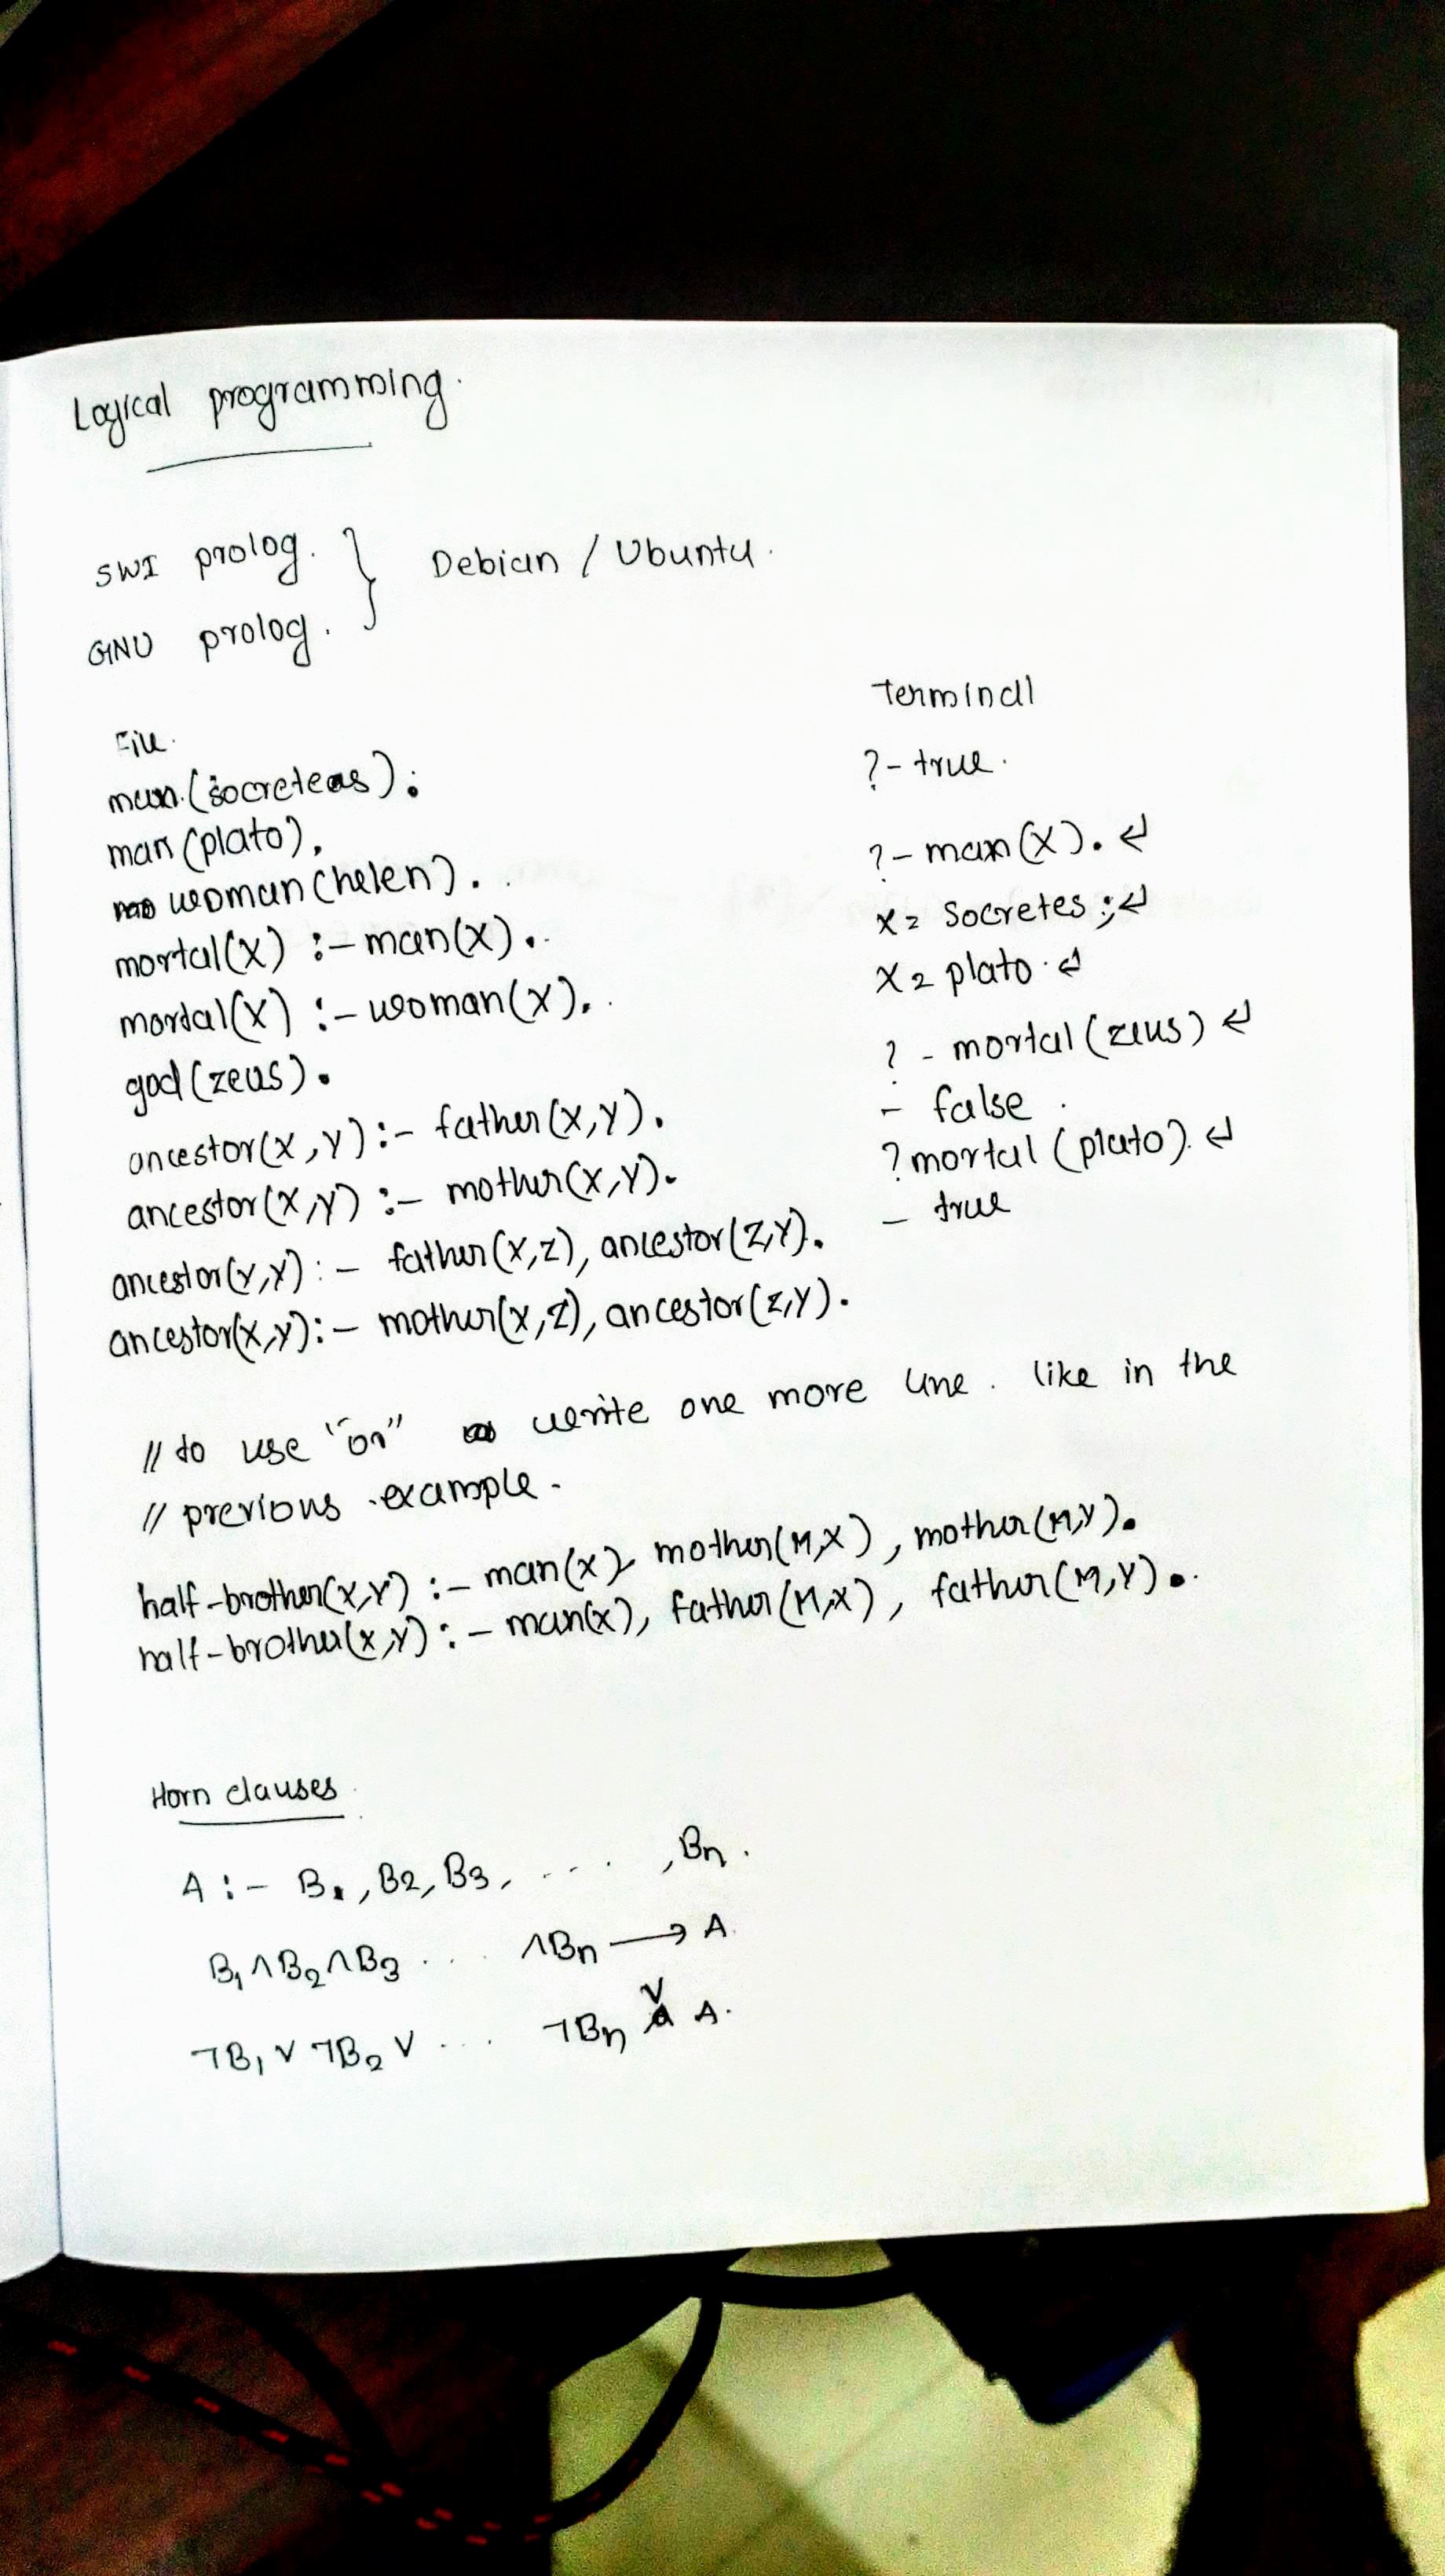 Logical programming.
SWI prolog. } Debian / Ubuntu.
GNU prolog.
File.
man(socreteas).
man(plato).
woman(helen).
mortal(X) :- man(X).
mortal(X) :- woman(X).
god(zeus).
ancestor(X,Y) :- father(X,Y).
ancestor(X,Y) :- mother(X,Y).
ancestor(Y,Y) :- father(X,Z), ancestor(Z,Y).
ancestor(X,Y) :- mother(X,Z), ancestor(Z,Y).
Terminal
?- true.
?- man(X). ↵
X = Socretes ; ↵
X = plato . ↵
? - mortal (zeus) ↵
- false .
? mortal (plato). ↵
- true
// to use "or" write one more line . like in the
// previous example.
half-brother(X,Y) :- man(X), mother(M,X), mother(M,Y).
half-brother(X,Y) :- man(X), father(M,X), father(M,Y).
Horn clauses
A :- B1, B2, B3, .... , Bn.
B1 ∧ B2 ∧ B3 .... ∧ Bn → A.
¬B1 ∨ ¬B2 ∨ ... ¬Bn ∨ A.